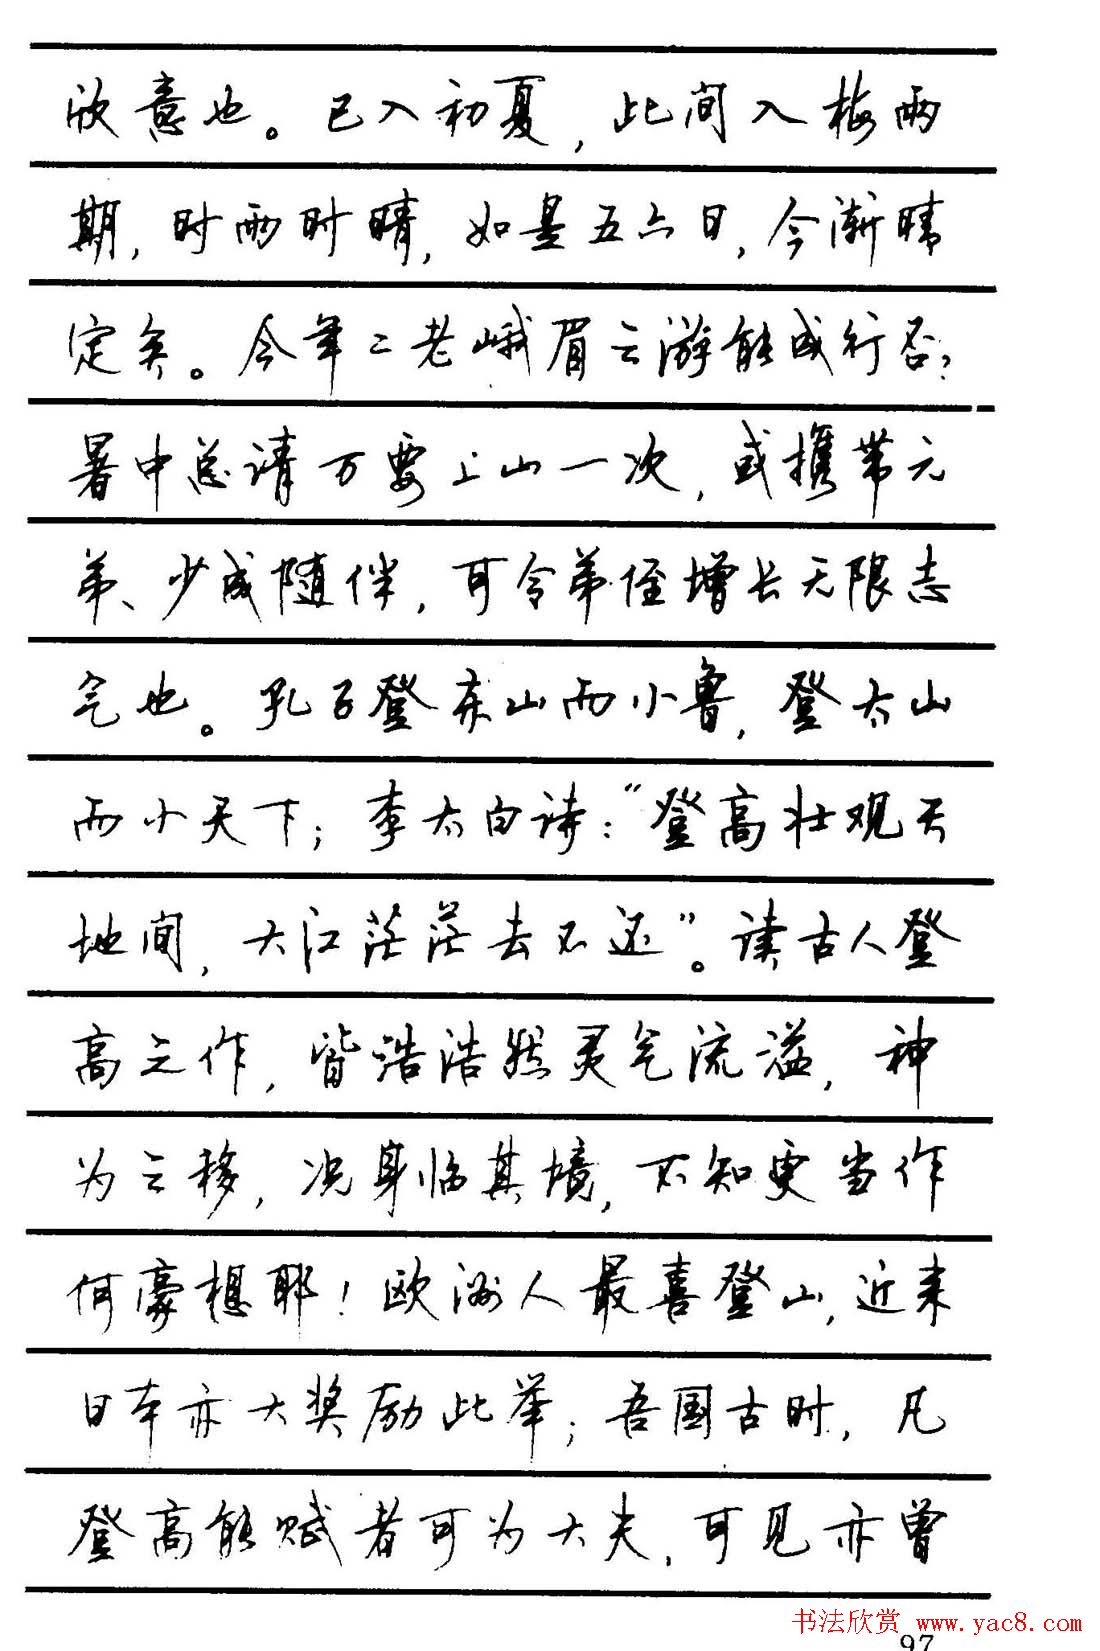 欣意也。已入初夏，此间入梅雨
期，时雨时晴，如是五六日，今渐晴
定矣。今年二老峨眉云游能成行否？
暑中总请万要上山一次，或携带元
弟、少成随伴，可令弟侄增长无限志
气也。孔子登东山而小鲁，登太山
而小天下；李太白诗："登高壮观天
地间，大江茫茫去不还"。读古人登
高之作，皆浩浩然灵气流溢，神
为云移，况身临其境，不知更当作
何豪想耶！欧洲人最喜登山，近来
日本亦大奖励此举；吾国古时，凡
登高能赋者可为大夫，可见亦曾
书法欣赏 www.yac8.com
97